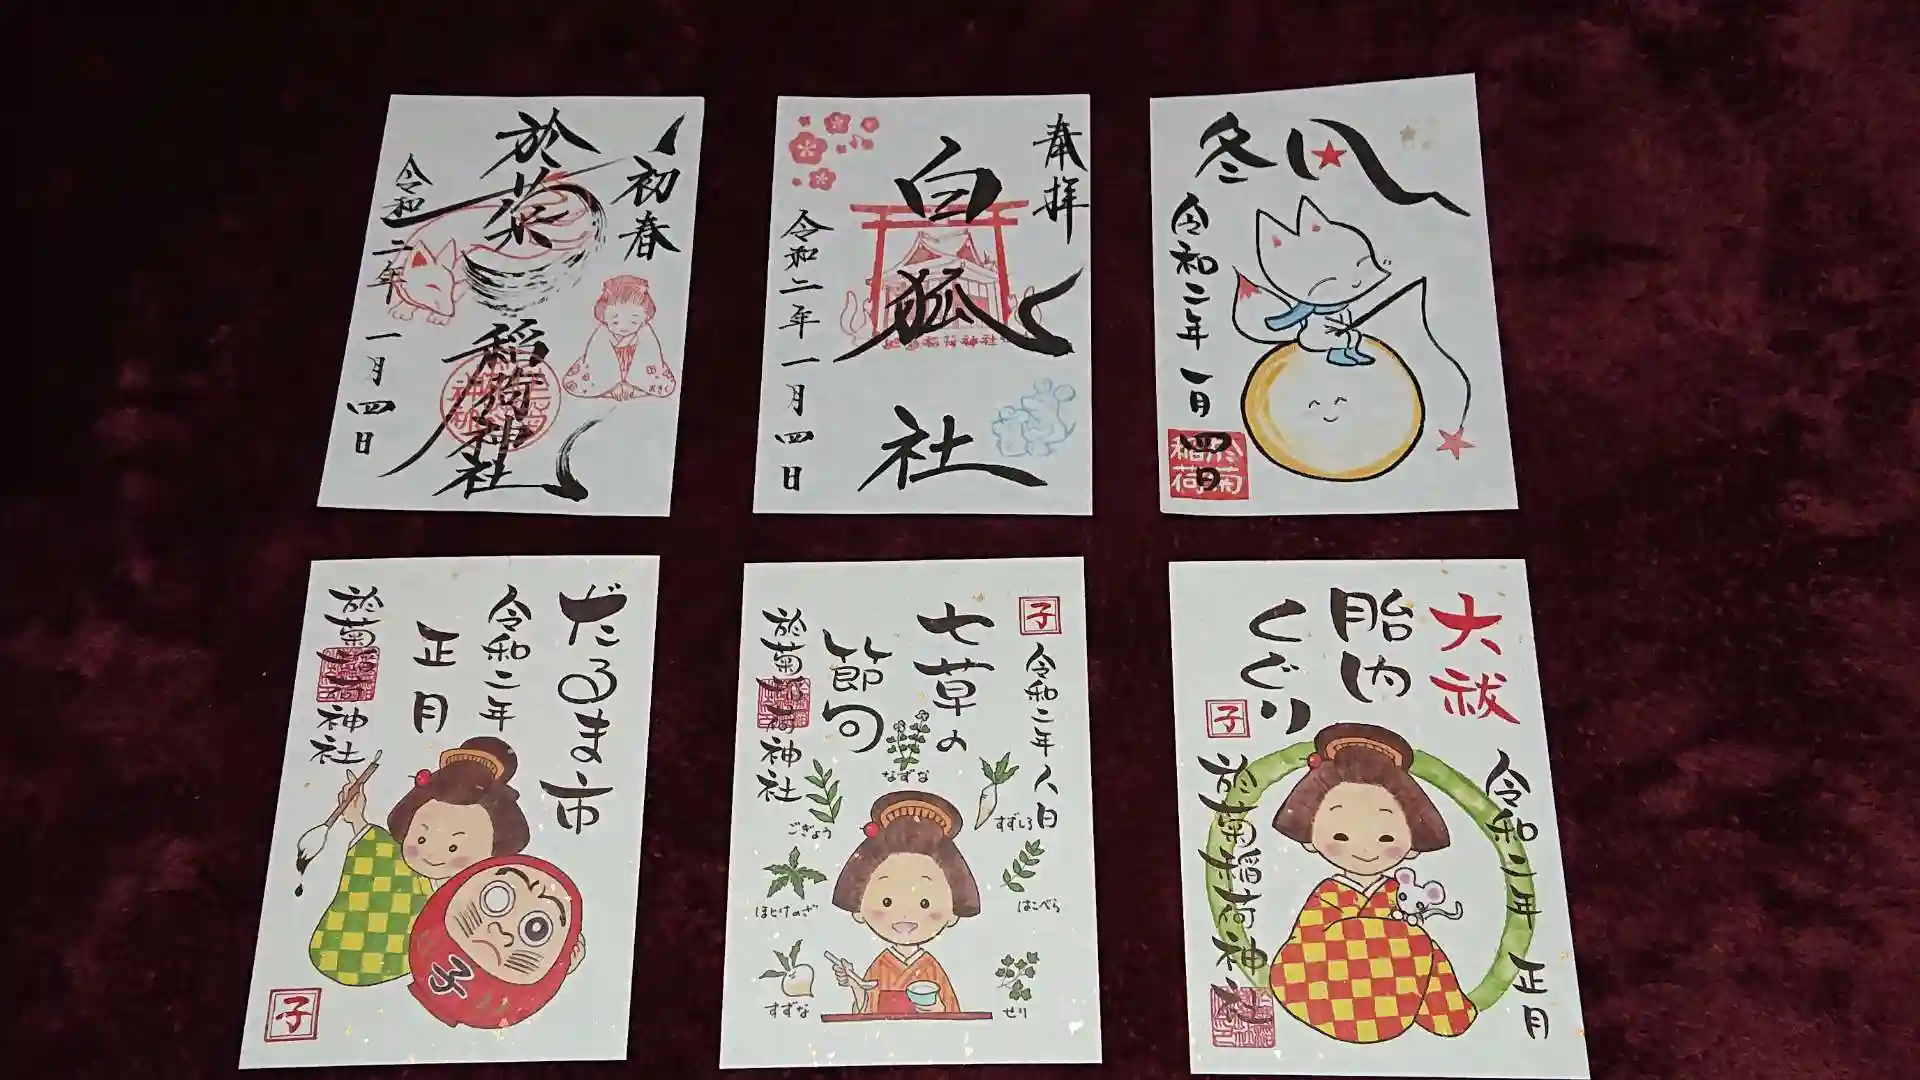 初春
於菊稲荷神社
令和二年一月四日
奉拝
白狐社
令和二年一月四日
冬凪
令和二年一月四日
於菊
稲荷
だるま市
令和二年
正月
於菊稲荷神社
子
子
子
令和二年人日
七草の
節句
於菊稲荷神社
なずな
ごぎょう
すずしろ
ほとけのざ
はこべら
すずな
せり
大祓
胎内
くぐり
子
令和二年 正月
於菊稲荷神社